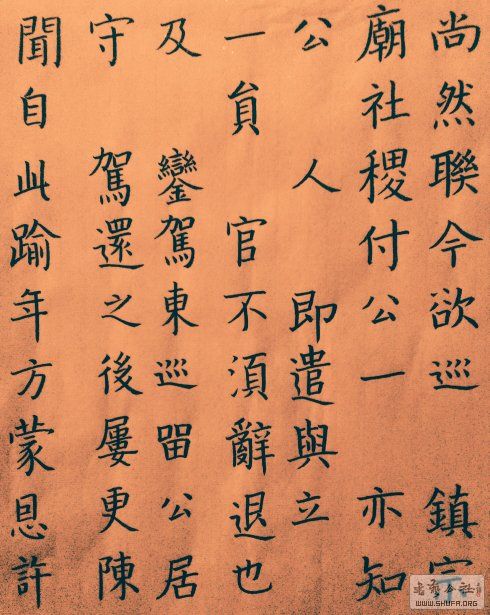 尚然聯今欲巡 鎮宗
廟社稷付公一 亦知
公 人 即遣與立
一貟 官不湏辭退也
及 鑾駕東巡留公居
守 駕還之後屢更陳
聞自此踰年方蒙恩許
WWW.SHUFA.ORG